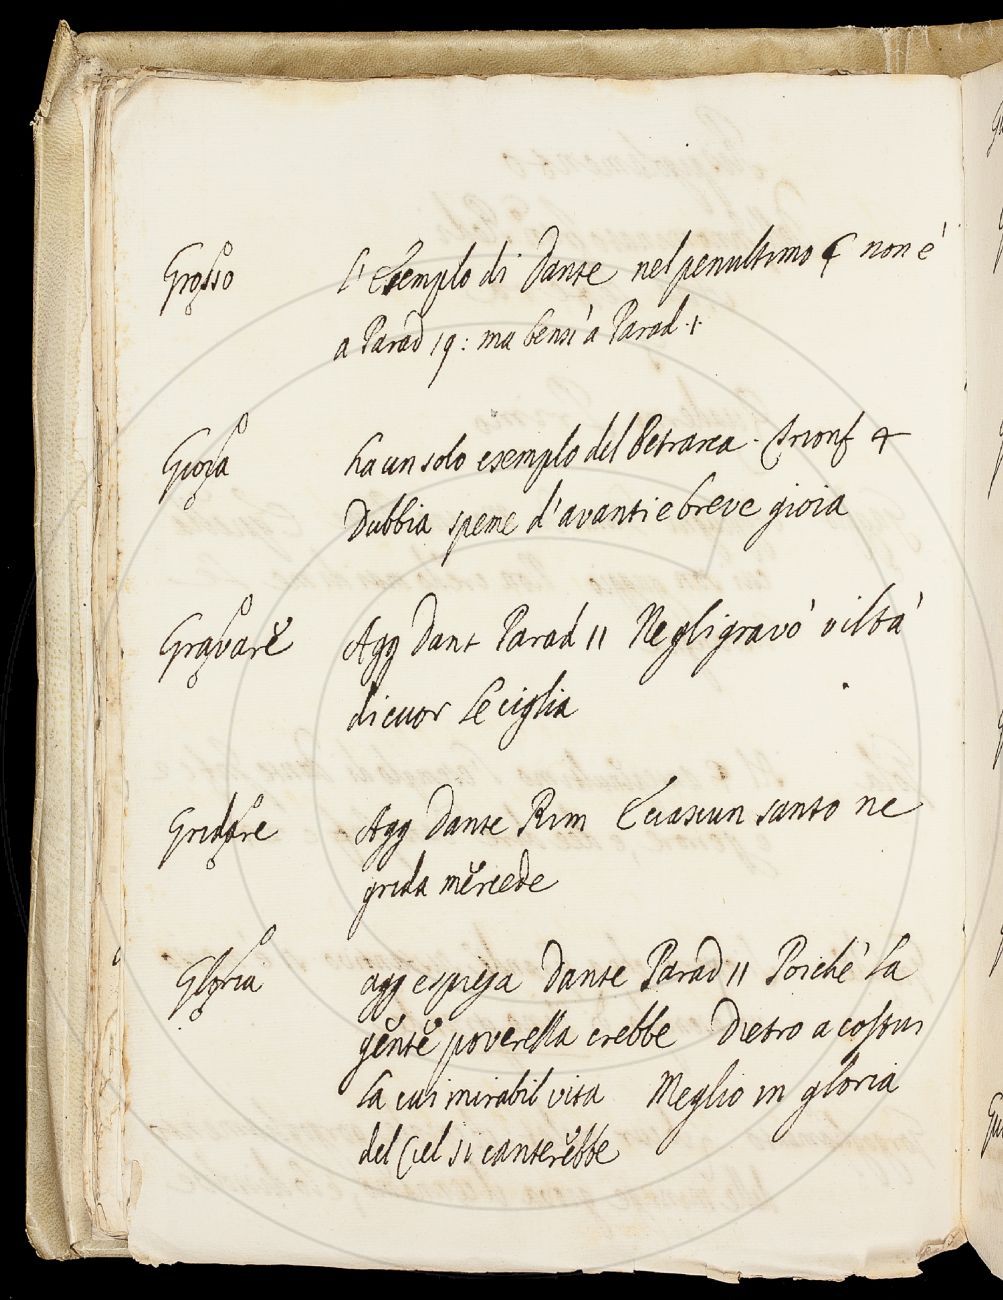 Grosso L'Esemplo di Dante nel penultimo § non è
a Parad 19: ma bensi a Parad +
Gioia ha un solo esemplo del Petrarca. Trionf 4
Dubbia speme d'avanti e breve gioia
Gravare Agg Dant Parad 11 Ne gli gravò viltà
di cuor le ciglia
Gridare Agg Dante Rim E ciascun santo ne
grida merzede
Gloria agg e spiega Dante Parad 11 Poichè la
gente poverella crebbe Dietro a costui
la cui mirabil vita Meglio in gloria
del Ciel si canterebbe